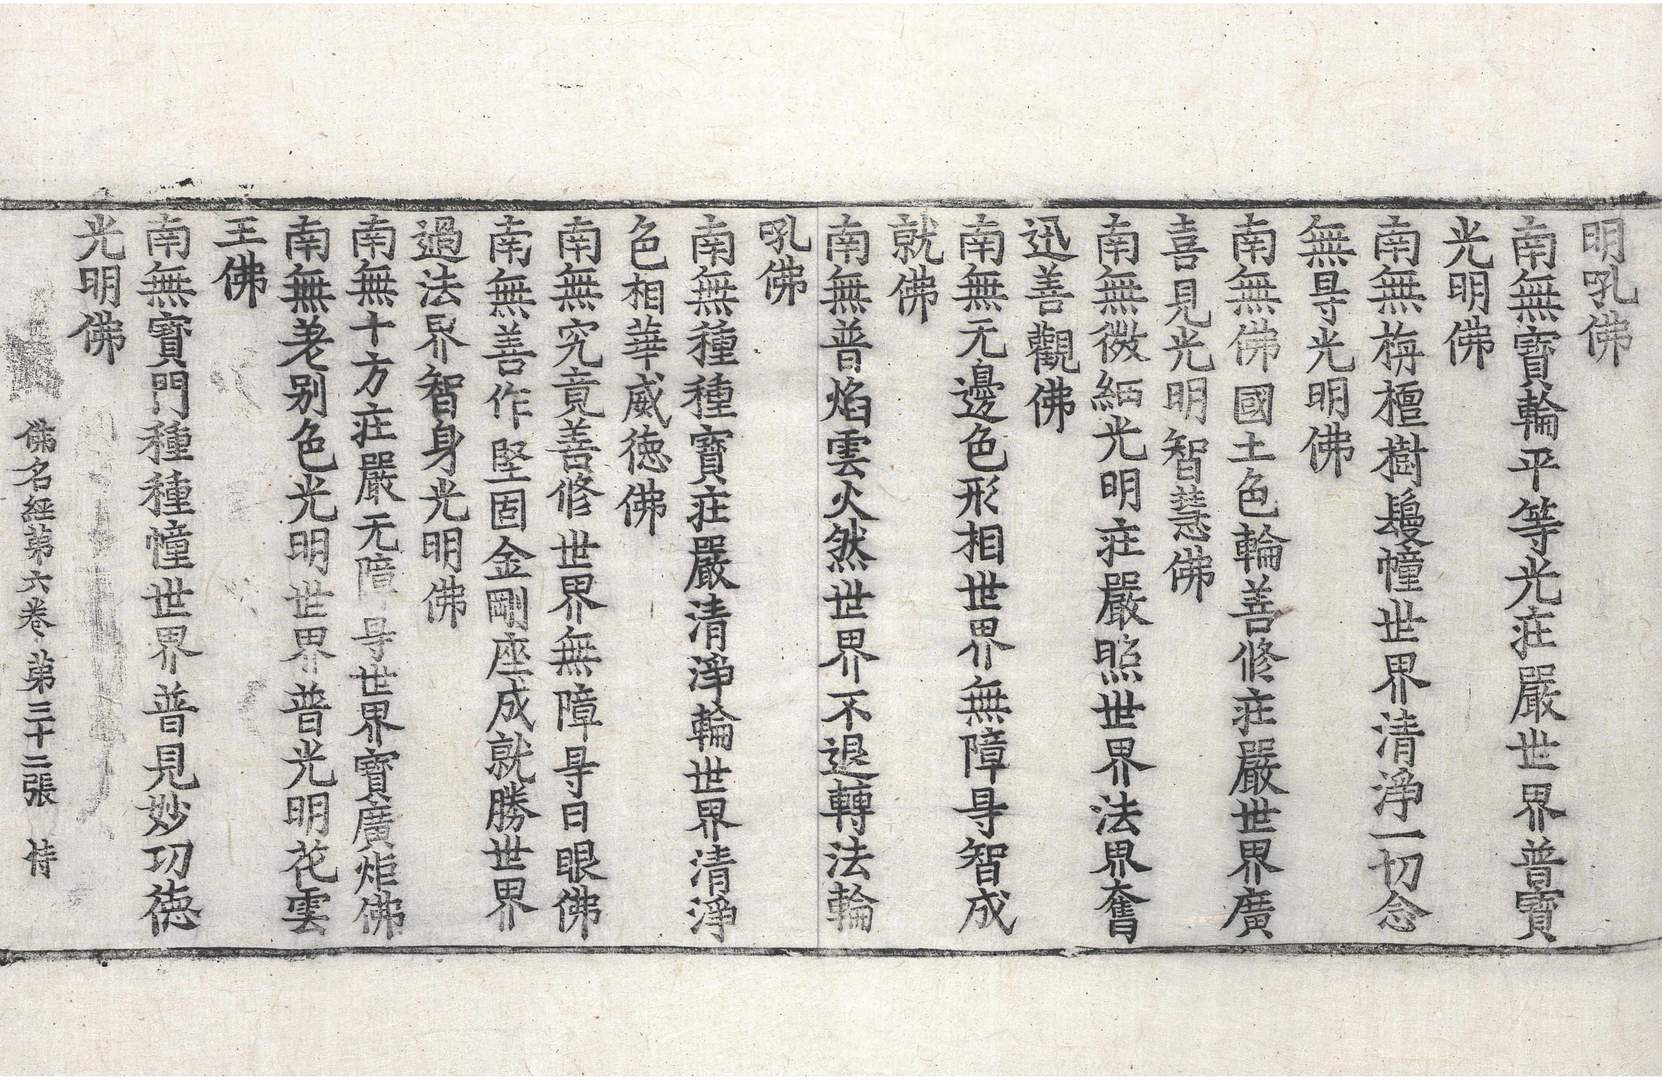 明吼佛
南無寶輪平等光庄嚴世界普寶
光明佛
南無栴檀樹鬘幢世界清淨一切念
無㝵光明佛
南無佛國土色輪善修庄嚴世界廣
喜見光明智慧佛
南無微細光明庄嚴照世界法界奮
迅善觀佛
南無无邊色形相世界無障㝵智成
就佛
南無普焰雲火然世界不退轉法輪
吼佛
南無種種寶庄嚴清淨輪世界清淨
色相華威德佛
南無究竟善修世界無障㝵日眼佛
南無善作堅固金剛座成就勝世界
過法界智身光明佛
南無十方庄嚴无障㝵世界寶廣炬佛
南無差别色光明世界普光明花雲
王佛
南無寶門種種幢世界普見妙功德
光明佛
佛名經第六卷 第三十二張 恃